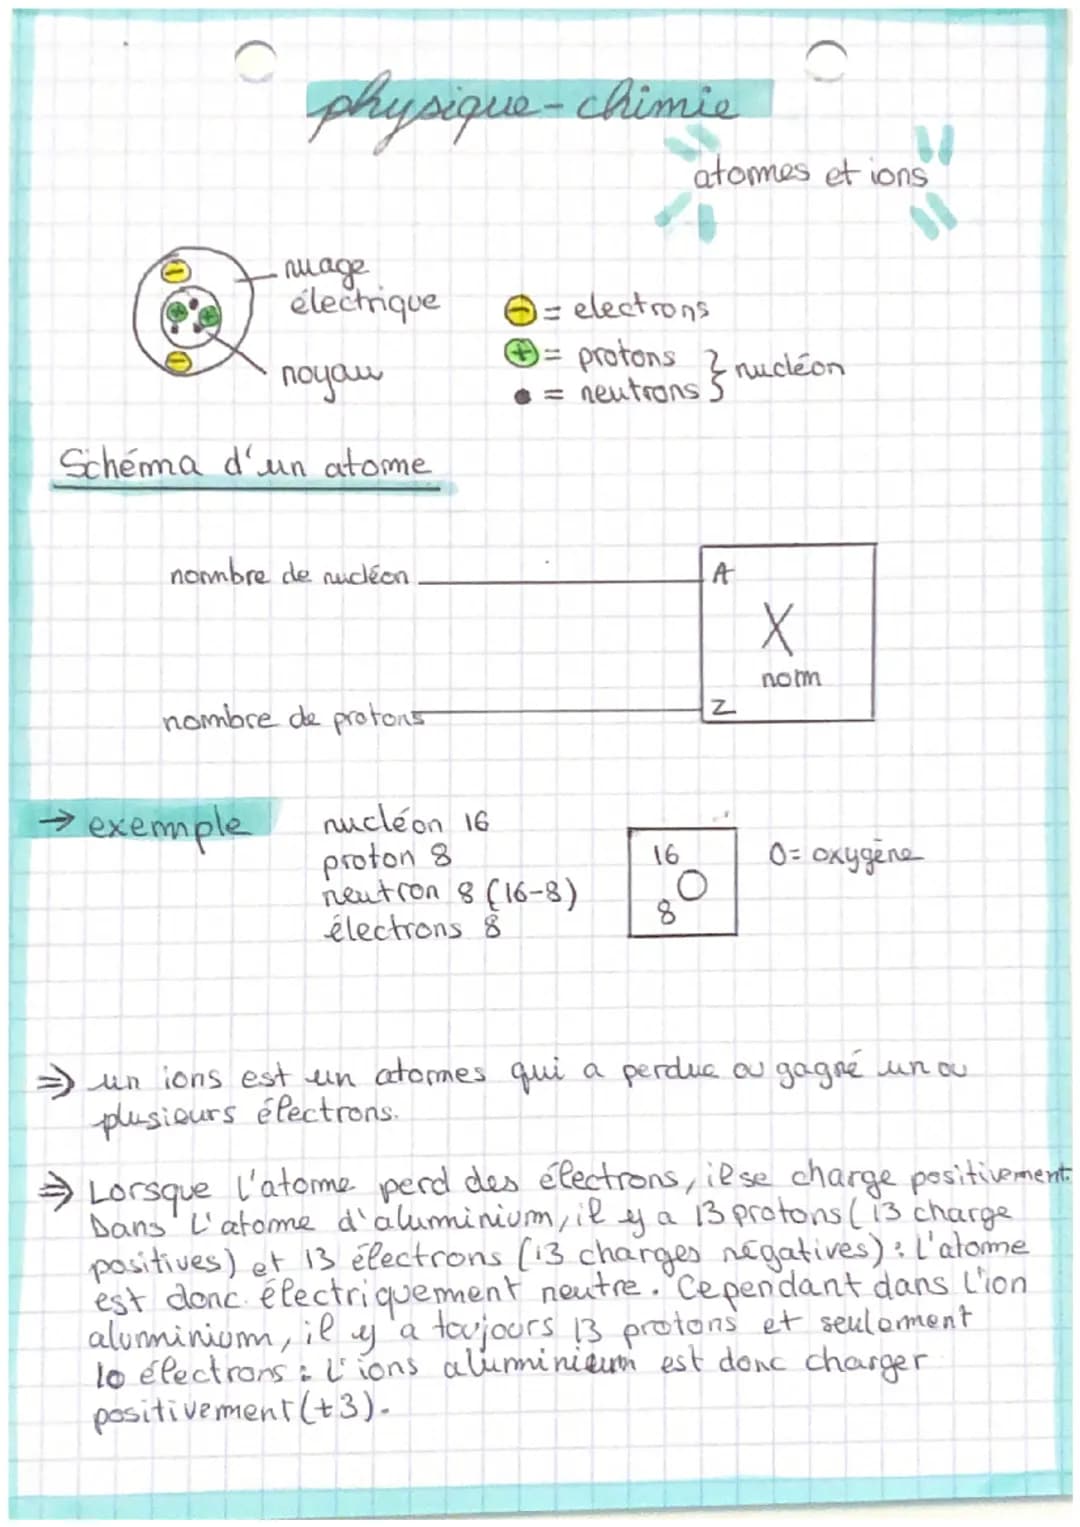 physique-chimie
atomes et ions
nuage
électrique
noyau
= electrons
= protons
= neutrons
} nucléon
Schéma d'un atome
nombre de nucléon
A
X
nom
nombre de protons
Z
→ exemple
nucléon 16
proton 8
neutron 8 (16-8)
électrons 8
16
O
8
O= oxygène
⇒ un ions est un atomes qui a perdue ou gagné un ou
plusieurs électrons.
⇒ Lorsque l'atome perd des électrons, il se charge positivement.
Dans l'atome d'aluminium, il y a 13 protons (13 charge
positives) et 13 électrons (13 charges négatives) : l'atome
est donc électriquement neutre. Cependant dans l'ion
aluminium, il y a toujours 13 protons et seulement
10 électrons : l'ions aluminium est donc charger
positivement (+3).